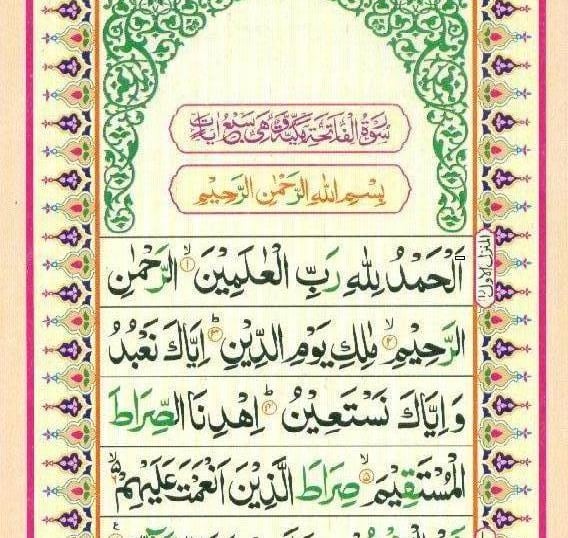 سورة الفاتحة مكية وهي سبع ايات
بِسْمِ اللهِ الرَّحْمٰنِ الرَّحِيْمِ
اَلْحَمْدُ لِلّٰهِ رَبِّ الْعٰلَمِيْنَ ۙ﴿۱﴾ الرَّحْمٰنِ
الرَّحِيْمِ ۙ﴿۲﴾ مٰلِكِ يَوْمِ الدِّيْنِ ؕ﴿۳﴾ اِيَّاكَ نَعْبُدُ
وَ اِيَّاكَ نَسْتَعِيْنُ ؕ﴿۴﴾ اِهْدِنَا الصِّرَاطَ
الْمُسْتَقِيْمَ ۙ﴿۵﴾ صِرَاطَ الَّذِيْنَ اَنْعَمْتَ عَلَيْهِمْ ۙ﴿۶﴾
المنزل الاول ۱